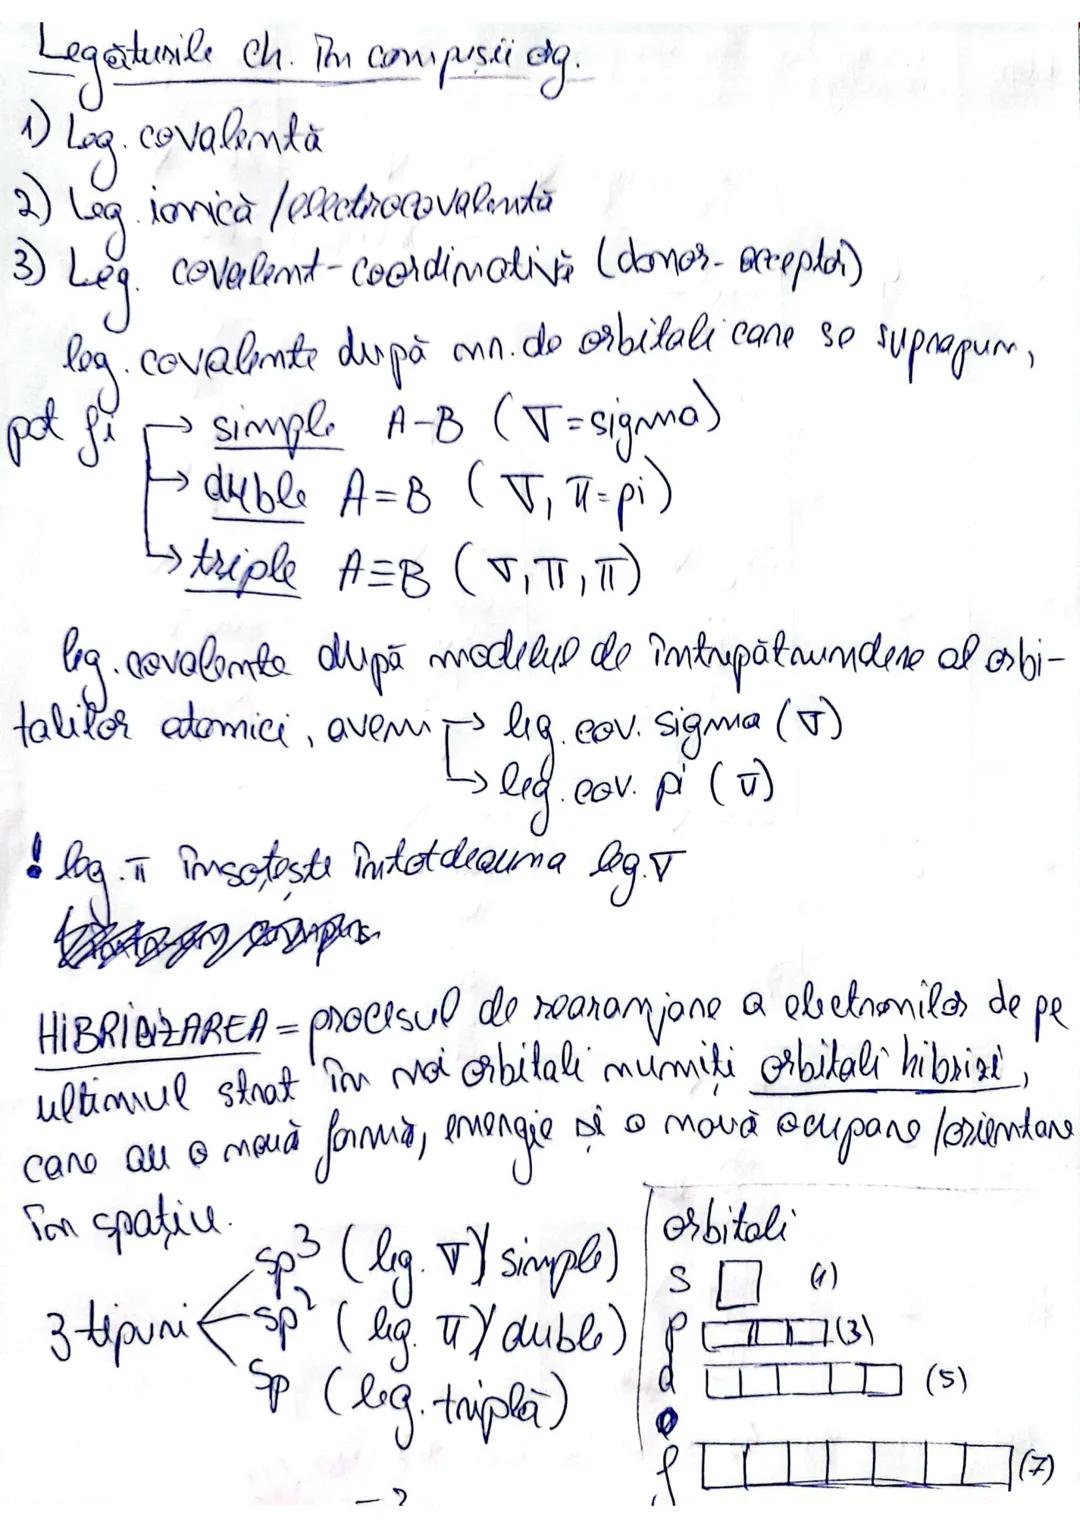 Legăturile ch. în compușii og.
1) Leg. covalentă
2) Leg. ionică / electrocovalentă
3) Leg. covalent-coordinativă (donor-acceptor)
leg. covalente după nr. de orbitali care se suprapun,
pot fi → simple A-B (σ=sigma)
→ duble A=B (σ, π=pi)
→ triple A≡B (σ, π, π)
leg. covalente după modelul de întrepătrundere al orbi-
talilor atomici, avem → leg. cov. sigma (σ)
→ leg. cov. pi (π)
! leg. π însoțește întotdeauna leg. σ
HIBRIDIZAREA = procesul de rearanjare a electronilor de pe
ultimul strat în noi orbitali numiți orbitali hibrizi,
care au o nouă formă, energie și o nouă ocupare /orientare
în spațiu.
3 tipuri
sp³ (leg. σ/ simple)
sp² (leg. π/ duble)
sp (leg. triplă)
orbitali
s (1)
p (3)
d (5)
f (7)